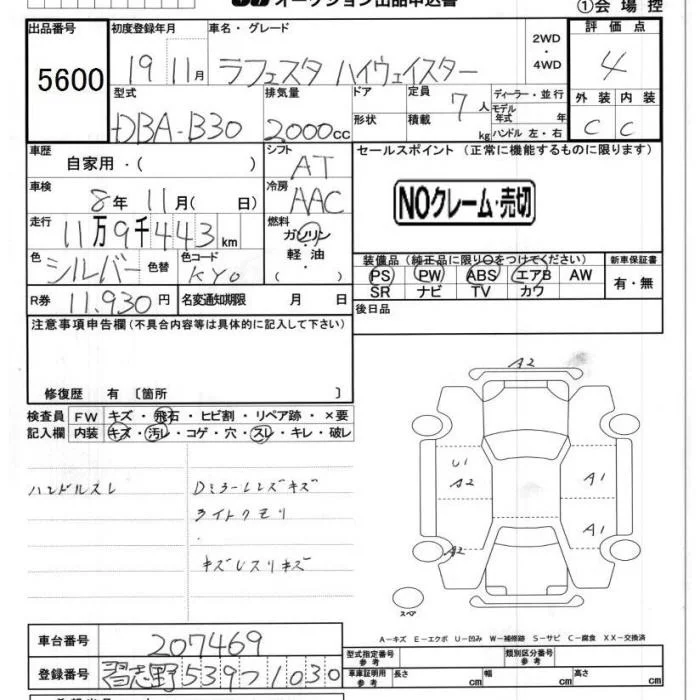 オークション出品申込書
①会場控
出品番号
5600
初度登録年月
19 11月
車名・グレード
ラフェスタ ハイウェイスター
2WD
・
4WD
評価点
4
外装 内装
C C
型式
DBA-B30
排気量
2000cc
ドア
形状
定員
7人
積載
kg
ディーラー・並行
モデル
年式 年
ハンドル 左・右
車歴
自家用・( )
シフト
AT
セールスポイント (正常に機能するものに限ります)
NOクレーム・売切
車検
8年 11月( 日)
冷房
AAC
走行
11万9千443km
燃料
ガソリン
軽油
( )
色
シルバー
色替
色コード
KY0
装備品 (純正品に限り○をつけてください)
PS PW ABS エアB AW
SR ナビ TV カワ
新車保証書
有・無
R券
11,930円
名変通知期限 月 日
後日品
注意事項申告欄(不具合内容等は具体的に記入して下さい)
修復歴 有 〔箇所 〕
検査員 FW キズ・飛石・ヒビ割・リペア跡・×要
記入欄 内装 キズ・汚レ・コゲ・穴・スレ・キレ・破レ
ハンドルスレ
Dミラーレンズキズ
ライトクモリ
キズレスリキズ
A2
U1
A2
A1
A1
A2
スペア
A－キズ E－エクボ U－凹み W－補修跡 S－サビ C－腐食 XX－交換済
車台番号
207469
登録番号
習志野539つ1030
型式指定番号
参考
類別区分番号
参考
車庫証明用
参考
長さ cm
幅 cm
高さ cm